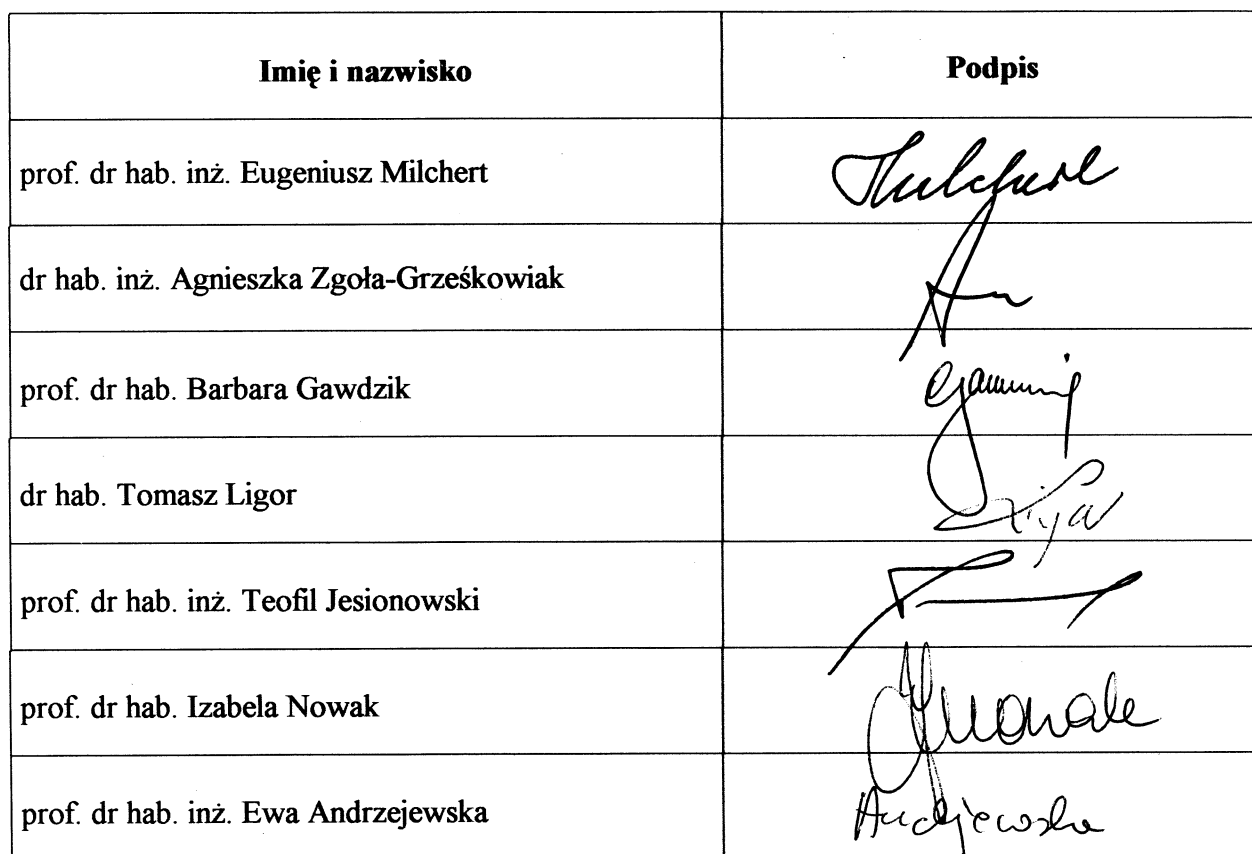 Imię i nazwisko Podpis
prof. dr hab. inż. Eugeniusz Milchert
dr hab. inż. Agnieszka Zgoła-Grześkowiak
prof. dr hab. Barbara Gawdzik
dr hab. Tomasz Ligor
prof. dr hab. inż. Teofil Jesionowski
prof. dr hab. Izabela Nowak
prof. dr hab. inż. Ewa Andrzejewska